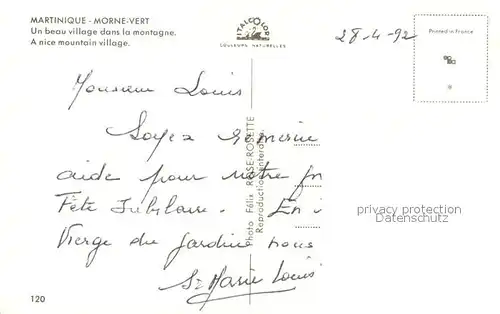 MARTINIQUE - MORNE-VERT
Un beau village dans la montagne.
A nice mountain village.
ITALCOLOR
COULEURS NATURELLES
28-4-92
Printed in France
Monsieur Louis
Soyez
aide pour notre
Fête Jubilaire. En
Vierge du Jardin nous
Sr Marie Louis
Photo Félix ROSE-ROSETTE
Reproduction interdite.
privacy protection
Datenschutz
120